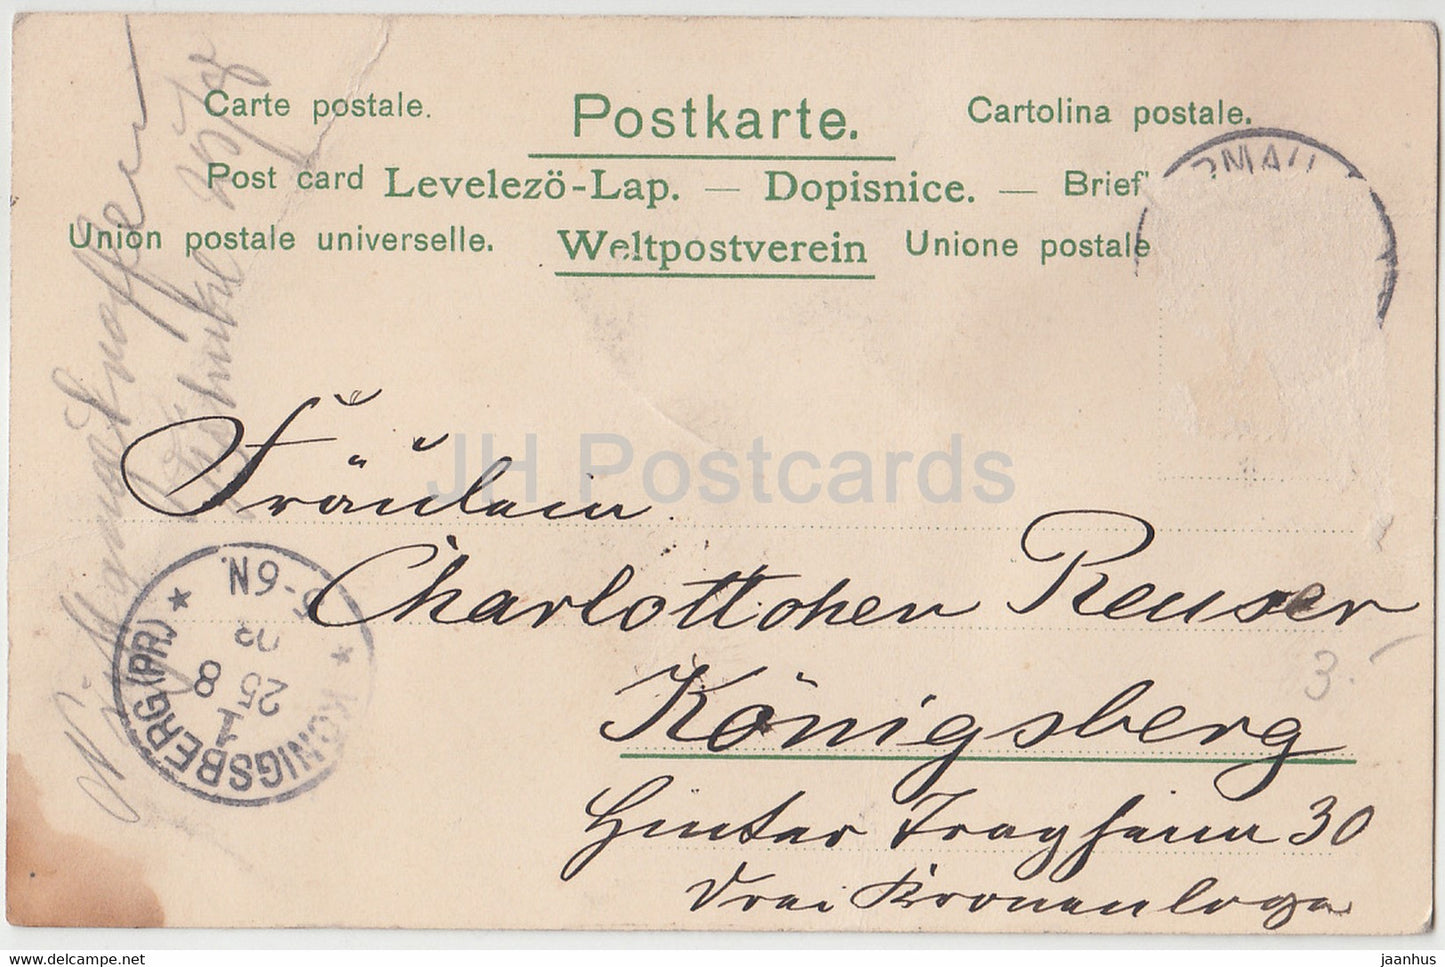 Carte postale. Postkarte. Cartolina postale.
Post card Levelezö-Lap. — Dopisnice. — Brief
Union postale universelle. Weltpostverein Unione postale
JH Postcards
Fräulein
Charlottchen Reuser
Königsberg
Hinter Tragheim 30
Drei Kronenloge
3.
KÖNIGSBERG (PR.)
1
25 8
03
5-6N.
hippostcard.com
jaanhus